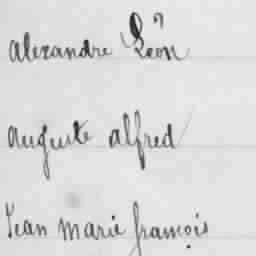 alexandre Léon
auguste alfred
Jean marie françois